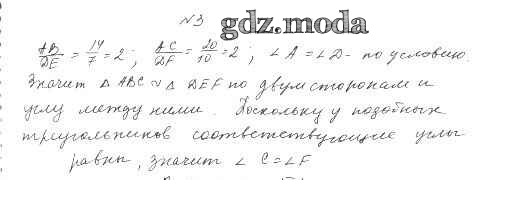 №3 gdz.moda
AB/DE = 14/7 = 2; AC/DF = 20/10 = 2; ∠A = ∠D - по условию.
Значит △ABC ∾ △DEF по двум сторонам и
углу между ними. Поскольку у подобных
треугольников соответствующие углы
равны, значит ∠C = ∠F